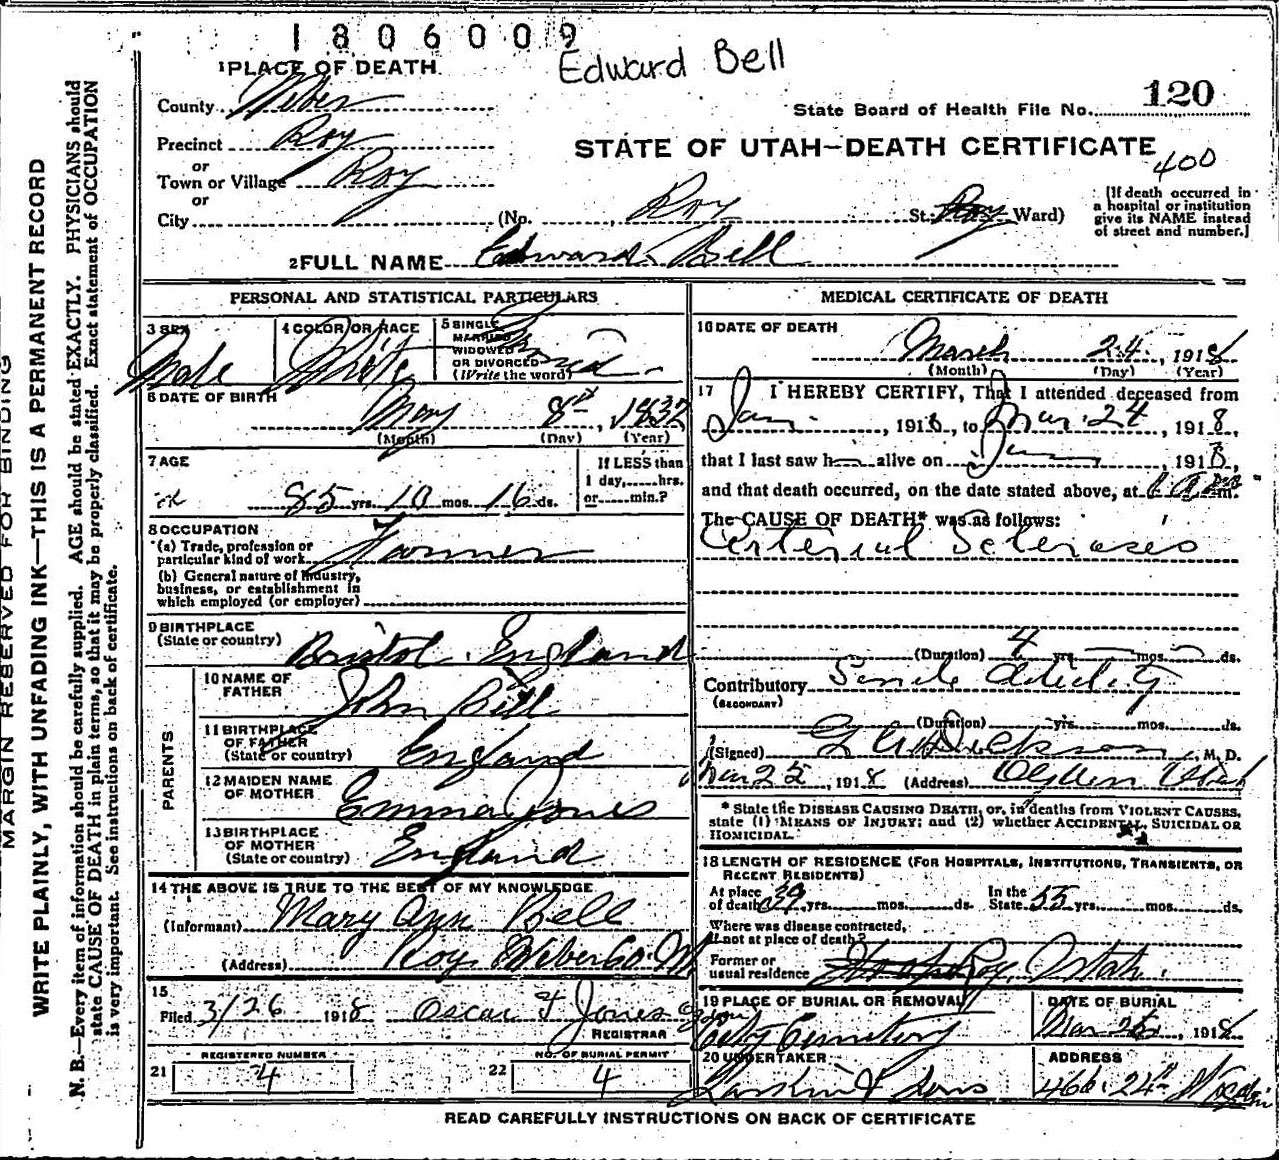 1806009
Edward Bell
1 PLACE OF DEATH
County Weber
State Board of Health File No. 120
Precinct Roy
STATE OF UTAH—DEATH CERTIFICATE
400
or
Town or Village Roy
or
City (No. , Roy St. Roy Ward)
(If death occurred in
a hospital or institution
give its NAME instead
of street and number.)
2 FULL NAME Edward Bell
PERSONAL AND STATISTICAL PARTICULARS
3 SEX
Male
4 COLOR OR RACE
White
5 SINGLE
MARRIED
WIDOWED
OR DIVORCED
(Write the word)
6 DATE OF BIRTH
May 8th, 1832
(Month) (Day) (Year)
7 AGE
85 yrs. 10 mos. 16 ds.
If LESS than
1 day, hrs.
or min.?
8 OCCUPATION
(a) Trade, profession or
particular kind of work Farmer
(b) General nature of industry,
business, or establishment in
which employed (or employer)
9 BIRTHPLACE
(State or country) Bristol England
PARENTS
10 NAME OF
FATHER John Bell
11 BIRTHPLACE
OF FATHER
(State or country) England
12 MAIDEN NAME
OF MOTHER Emma Jones
13 BIRTHPLACE
OF MOTHER
(State or country) England
14 THE ABOVE IS TRUE TO THE BEST OF MY KNOWLEDGE
(Informant) Mary Ann Bell
(Address) Roy Weber Co.
15
Filed 3/26 1918 Oscar F Jones
REGISTRAR
21 REGISTERED NUMBER
4
22 NO. OF BURIAL PERMIT
4
MEDICAL CERTIFICATE OF DEATH
16 DATE OF DEATH
March 24, 1918
(Month) (Day) (Year)
17 I HEREBY CERTIFY, That I attended deceased from
Jan, 1918, to Mar. 24, 1918,
that I last saw h alive on Jan, 1918,
and that death occurred, on the date stated above, at m.
The CAUSE OF DEATH* was as follows:
Arterial Scleroses
(Duration) 4 yrs. mos. ds.
Contributory Senile debility
(SECONDARY)
(Duration) yrs. mos. ds.
(Signed) Dickson, M. D.
Mar 25, 1918 (Address) Ogden Utah
* State the DISEASE CAUSING DEATH, or, in deaths from VIOLENT CAUSES,
state (1) MEANS OF INJURY; and (2) whether ACCIDENTAL, SUICIDAL OR
HOMICIDAL.
18 LENGTH OF RESIDENCE (FOR HOSPITALS, INSTITUTIONS, TRANSIENTS, OR
RECENT RESIDENTS)
At place
of death 39 yrs. mos. ds.
In the
State 55 yrs. mos. ds.
Where was disease contracted,
if not at place of death?
Former or
usual residence Roy, Utah.
19 PLACE OF BURIAL OR REMOVAL
City Cemetery
DATE OF BURIAL
Mar 26, 1918
20 UNDERTAKER
Larkin & Sons
ADDRESS
466. 24th St Ogden
READ CAREFULLY INSTRUCTIONS ON BACK OF CERTIFICATE
MARGIN RESERVED FOR BINDING
WRITE PLAINLY, WITH UNFADING INK—THIS IS A PERMANENT RECORD
N. B.—Every item of information should be carefully supplied. AGE should be stated EXACTLY. PHYSICIANS should
state CAUSE OF DEATH in plain terms, so that it may be properly classified. Exact statement of OCCUPATION
is very important. See instructions on back of certificate.